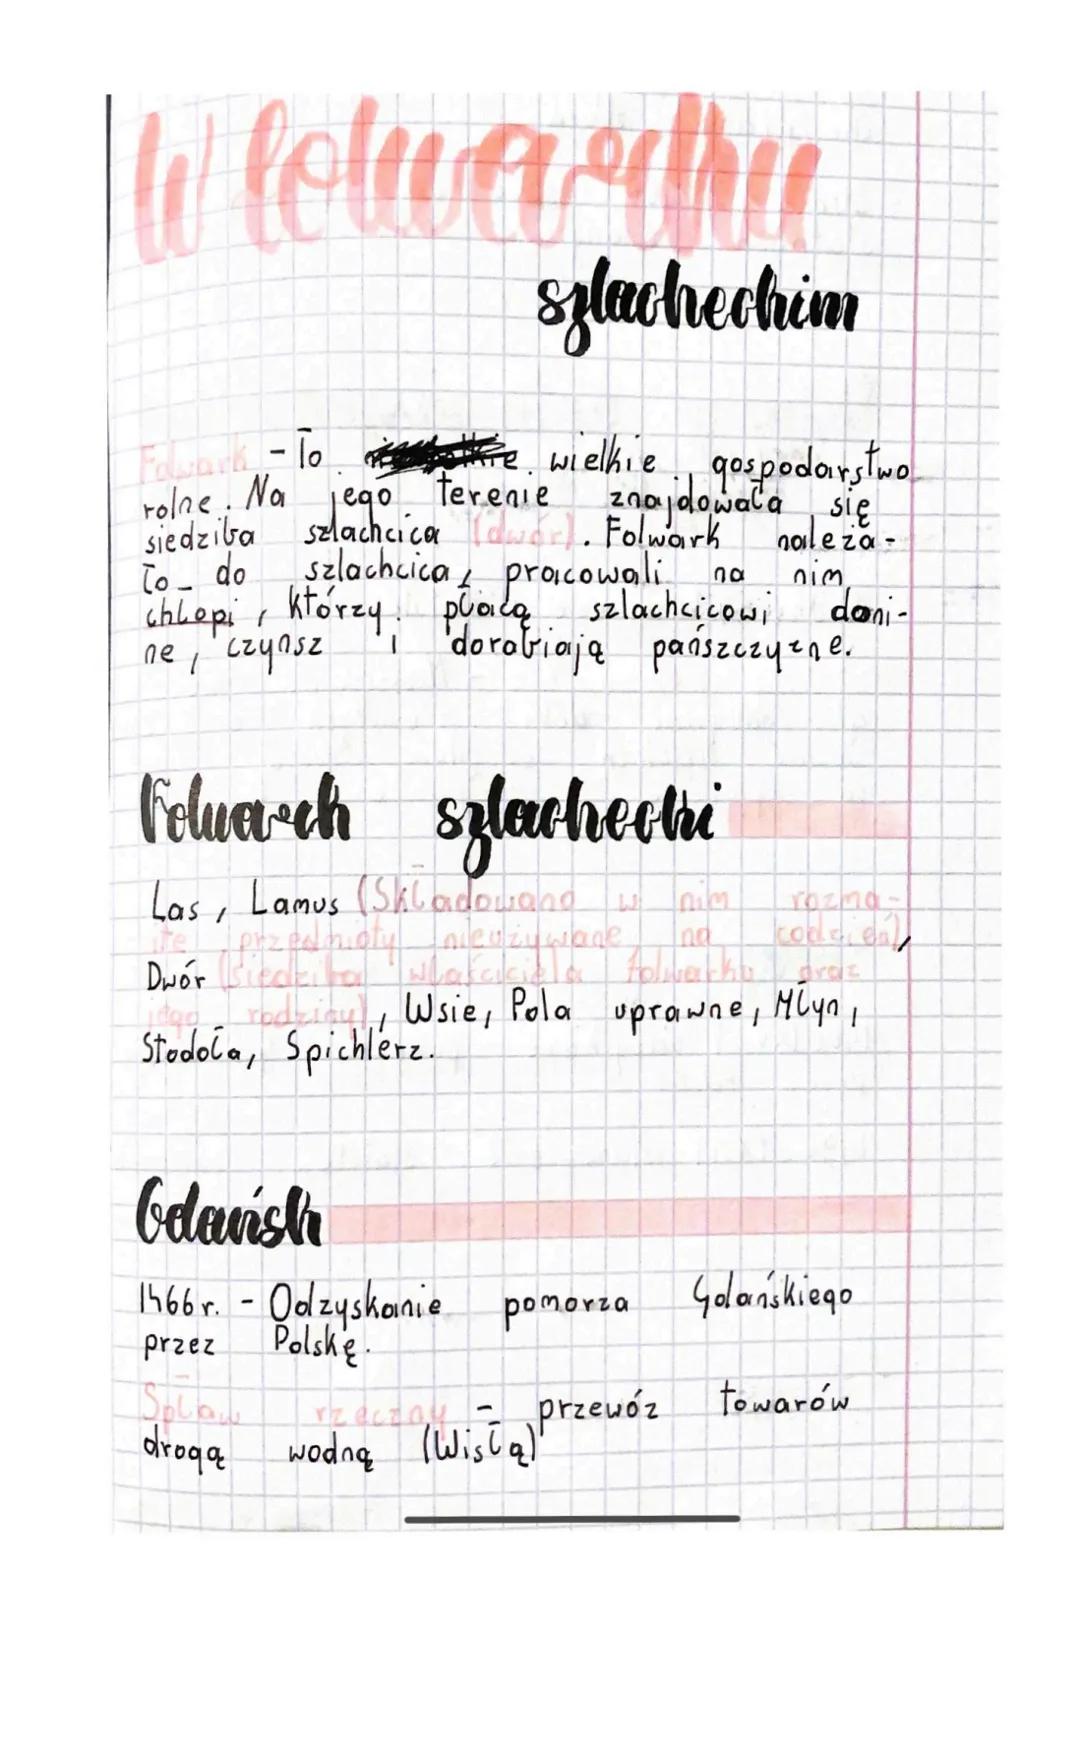 W folwarku
szlacheckim
Folwark - To wielkie gospodarstwo
rolne. Na jego terenie znajdowała się
siedziba szlachcica (dwór). Folwark należa-
ło do szlachcica, pracowali na nim
chłopi, którzy płacą szlachcicowi dani-
ne, czynsz i dorabiają pańszczyzne.
Folwark szlachecki
Las, Lamus (Składowano w nim rozma-
ite przedmioty nieużywane na codzień),
Dwór (siedziba właściciela folwarku oraz
jego rodziny), Wsie, Pola uprawne, Młyn,
Stodoła, Spichlerz.
Gdańsk
1466r. - Odzyskanie pomorza Gdańskiego
przez Polskę.
Spław rzeczny - przewóz towarów
drogą wodną (Wisłą)